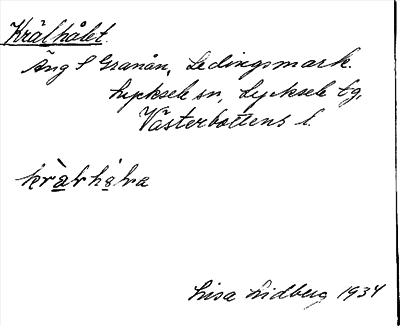 Krälhålet.
Äng S Granån, Ledingsmark.
Lycksele sn, Lycksele tg.
Västerbottens l.
Lisa Lidberg 1934